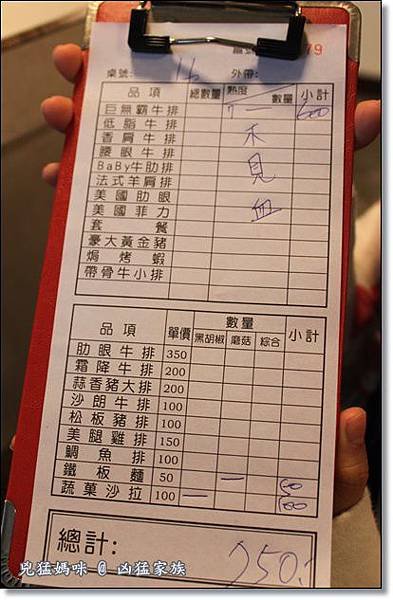 79
桌號: 16 外帶:
品項 總數量 熟度 數量 小計
巨無霸牛排 7 一 600
低脂牛排
香肩牛排
腰眼牛排
BaBy牛肋排
法式羊肩排
美國肋眼
美國菲力
套餐
豪大黃金豬
焗烤蝦
帶骨牛小排
不見血
品項 單價 數量 小計
黑胡椒 磨菇 綜合
肋眼牛排 350
霜降牛排 200
蒜香豬大排 200
沙朗牛排 100
松板豬排 100
美腿雞排 150
鯛魚排 100
鐵板麵 50 一 50
蔬菓沙拉 100 一 100
總計: 750.
兇猛媽咪 @ 凶猛家族